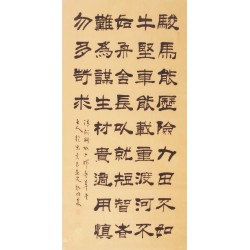 駿馬能歷險力田不如
牛堅車能載重渡河不
如舟舍長以就短智者
難為謀生材貴適用慎
勿多苛求